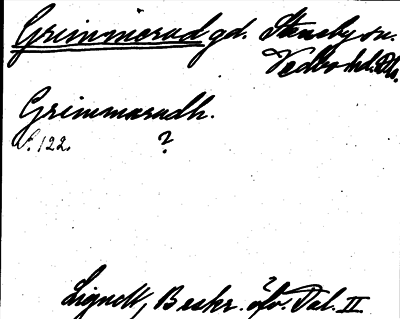 Grimmerad gd. Steneby sn.
Vedbo hd. Dls.
Grimmaradh.
S. 122. ?
Lignell, Beskr. öfv. Dal. II